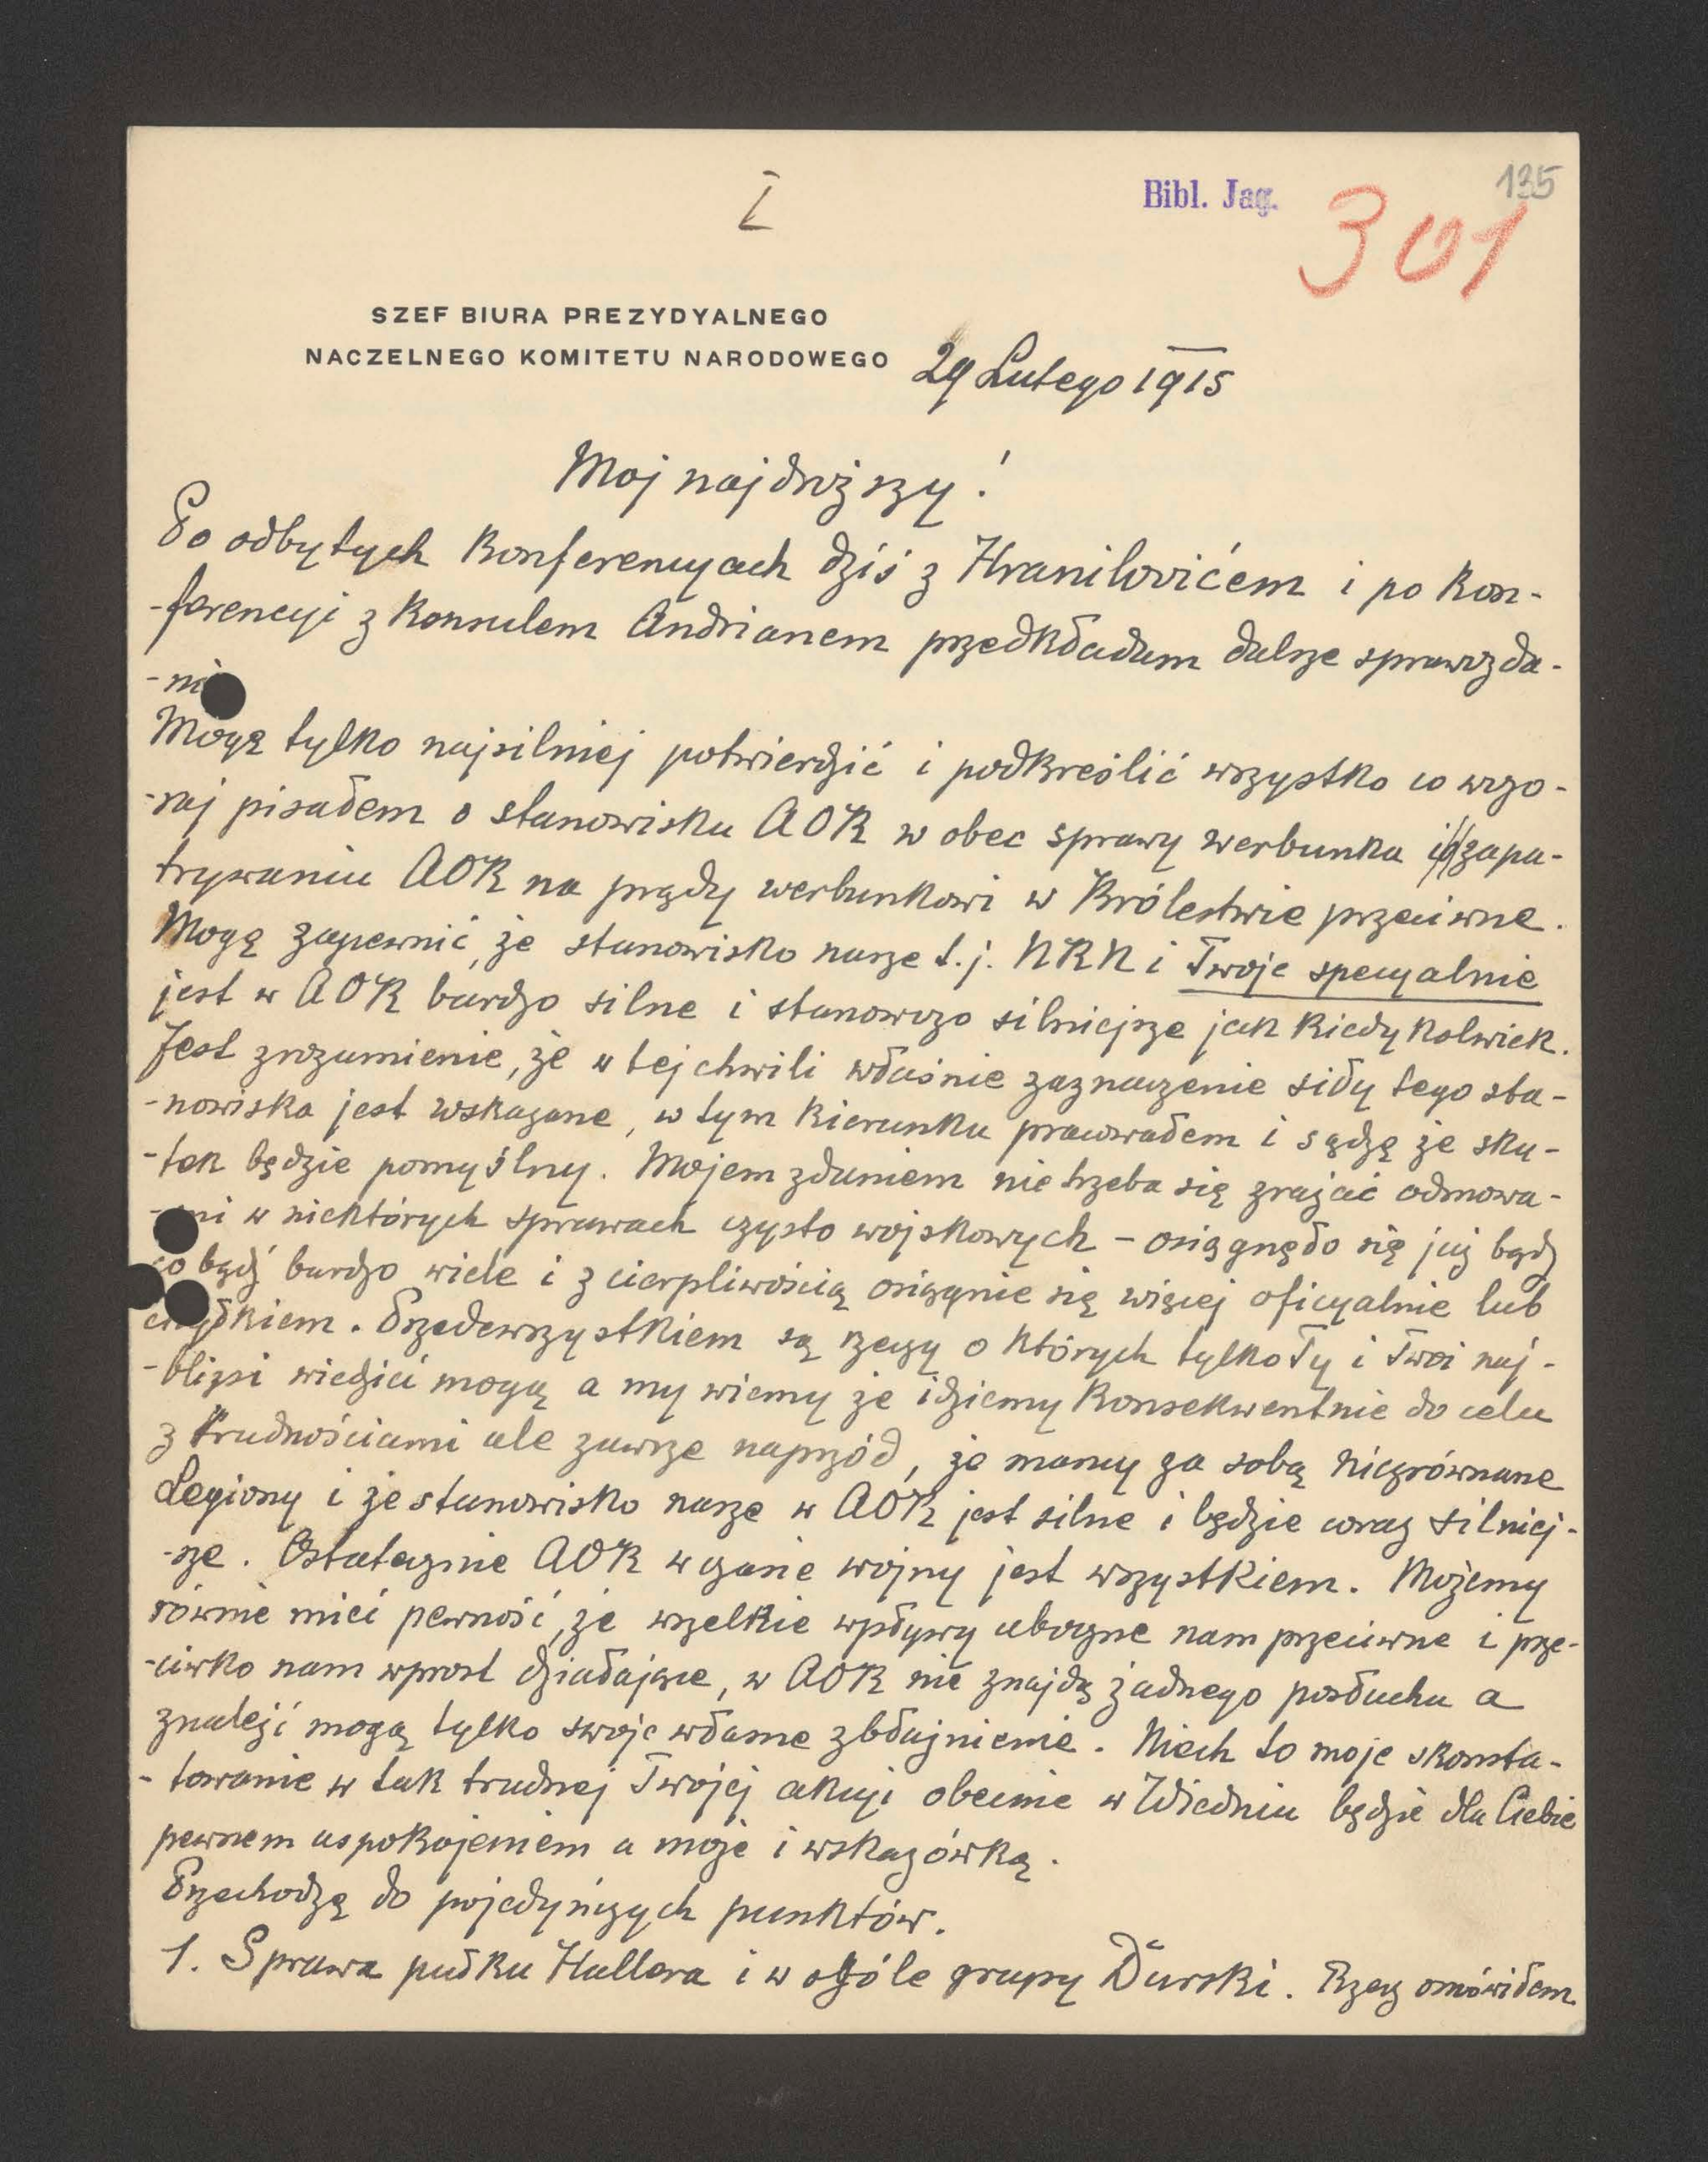 I
Bibl. Jag.
135
301
SZEF BIURA PREZYDYALNEGO
NACZELNEGO KOMITETU NARODOWEGO
29 Lutego 1915
Moj najdroższy!
Po odbytych Konferencyach dziś z Hranilovićem i po Kon-
-ferencyi z Konsulem Andrianem przedkładam dalsze sprawozda-
-ni
Mogę tylko najsilniej potwierdzić i podkreślić wszystko co wczo-
-raj pisałem o stanowisku AOK w obec sprawy werbunku i zapa-
trywaniu AOK na prądy werbunkowi w Królestwie przeciwne.
Mogę zapewnić, że stanowisko nasze t.j. NKN i Twoje specyalnie
jest w AOK bardzo silne i stanowczo silniejsze jak Kiedykolwiek.
Jest zrozumienie, że w tej chwili właśnie zaznaczenie siły tego sta-
-nowiska jest wskazane, w tym Kierunku pracowałem i sądzę że sku-
-tek będzie pomyślny. Mojem zdaniem nie trzeba się zrażać odmowa-
-mi w niektórych sprawach czysto wojskowych - osiągnęło się już bądź
co bądź bardzo wiele i z cierpliwością osiągnie się więcej oficyalnie lub
. Przedewszystkiem są rzeczy o Których tylko Ty i Twoi naj-
-bliżsi wiedzieć mogą a my wiemy że idziemy Konsekwentnie do celu
z trudnościami ale zawsze naprzód, że mamy za sobą niezrównane
Legiony i że stanowisko nasze w AOK jest silne i będzie coraz silniej-
-sze. Ostatecznie AOK w czasie wojny jest wszystkiem. Możemy
równie mieć pewność, że wszelkie wpływy uboczne nam przeciwne i prze-
-ciwko nam wprost działające, w AOK nie znajdą żadnego posłuchu a
znaleźć mogą tylko swoje własne zbłaźnienie. Niech to moje skonsta-
-towanie w tak trudnej Twojej akcyi obecnie w Wiedniu będzie dla Ciebie
pewnem uspokojeniem a może i wskazówką.
Przechodzę do pojedyńczych punktów.
1. Sprawa pułku Hallera i w ogóle grupy Durski. Rzecz omówiłem